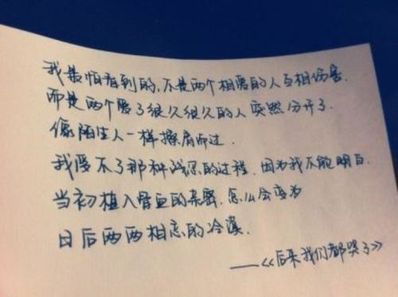 我最怕看到的,不是两个相爱的人互相伤害.
而是两个爱了很久很久的人突然分开了.
像陌生人一样擦肩而过.
我受不了那种残忍的过程.因为我不能明白.
当初植入骨血的亲密.怎么会变为
日后两两相忘的冷漠.
——《后来我们都哭了》